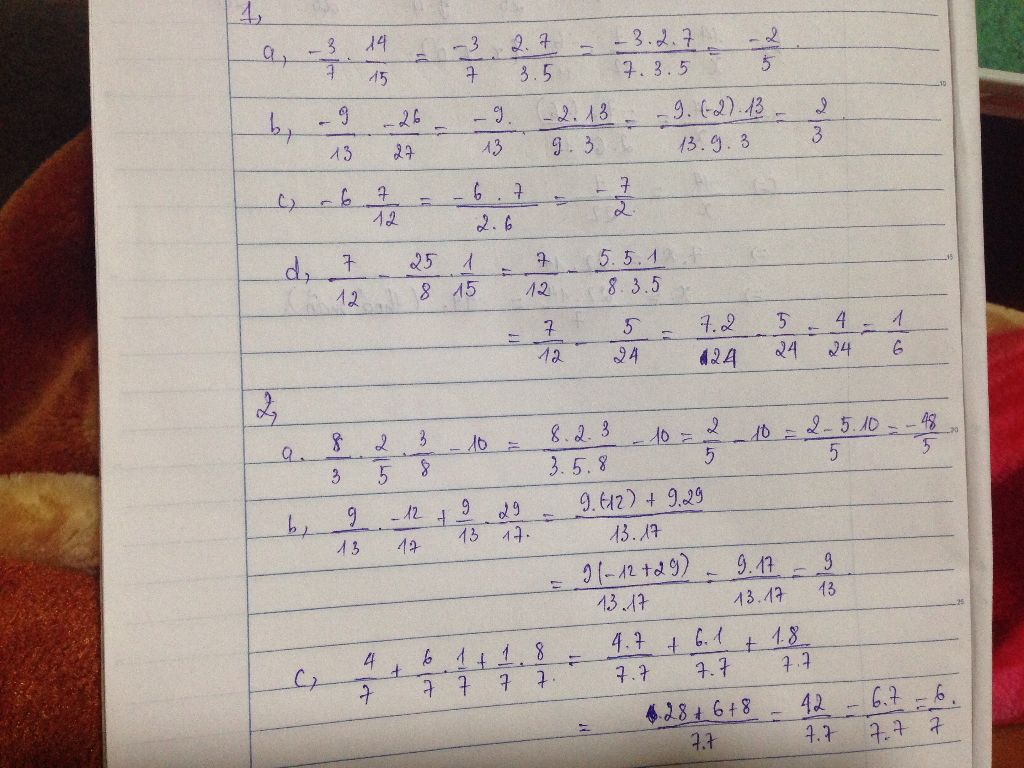 1,
a, -3/7 . 14/15 = -3/7 . 2.7/3.5 = -3.2.7/7.3.5 = -2/5.
b, -9/13 . -26/27 = -9./13 . -2.13/9.3 = -9.(-2).13/13.9.3 = 2/3
c, -6 7/12 = -6.7/2.6 = -7/2.
d, 7/12 - 25/8 . 1/15 = 7/12 - 5.5.1/8.3.5
= 7/12 - 5/24 = 7.2/24 - 5/24 = 4/24 = 1/6
2,
a. 8/3 . 2/5 . 3/8 - 10 = 8.2.3/3.5.8 - 10 = 2/5 - 10 = 2-5.10/5 = -48/5
b, 9/13 . -12/17 + 9/13 . 29/17. = 9.(-12) + 9.29/13.17
= 9(-12+29)/13.17 = 9.17/13.17 = 9/13
c, 4/7 + 6/7 . 1/7 + 1/7 . 8/7. = 4.7/7.7 + 6.1/7.7 + 1.8/7.7
= 28+6+8/7.7 = 42/7.7 = 6.7/7.7 = 6/7.